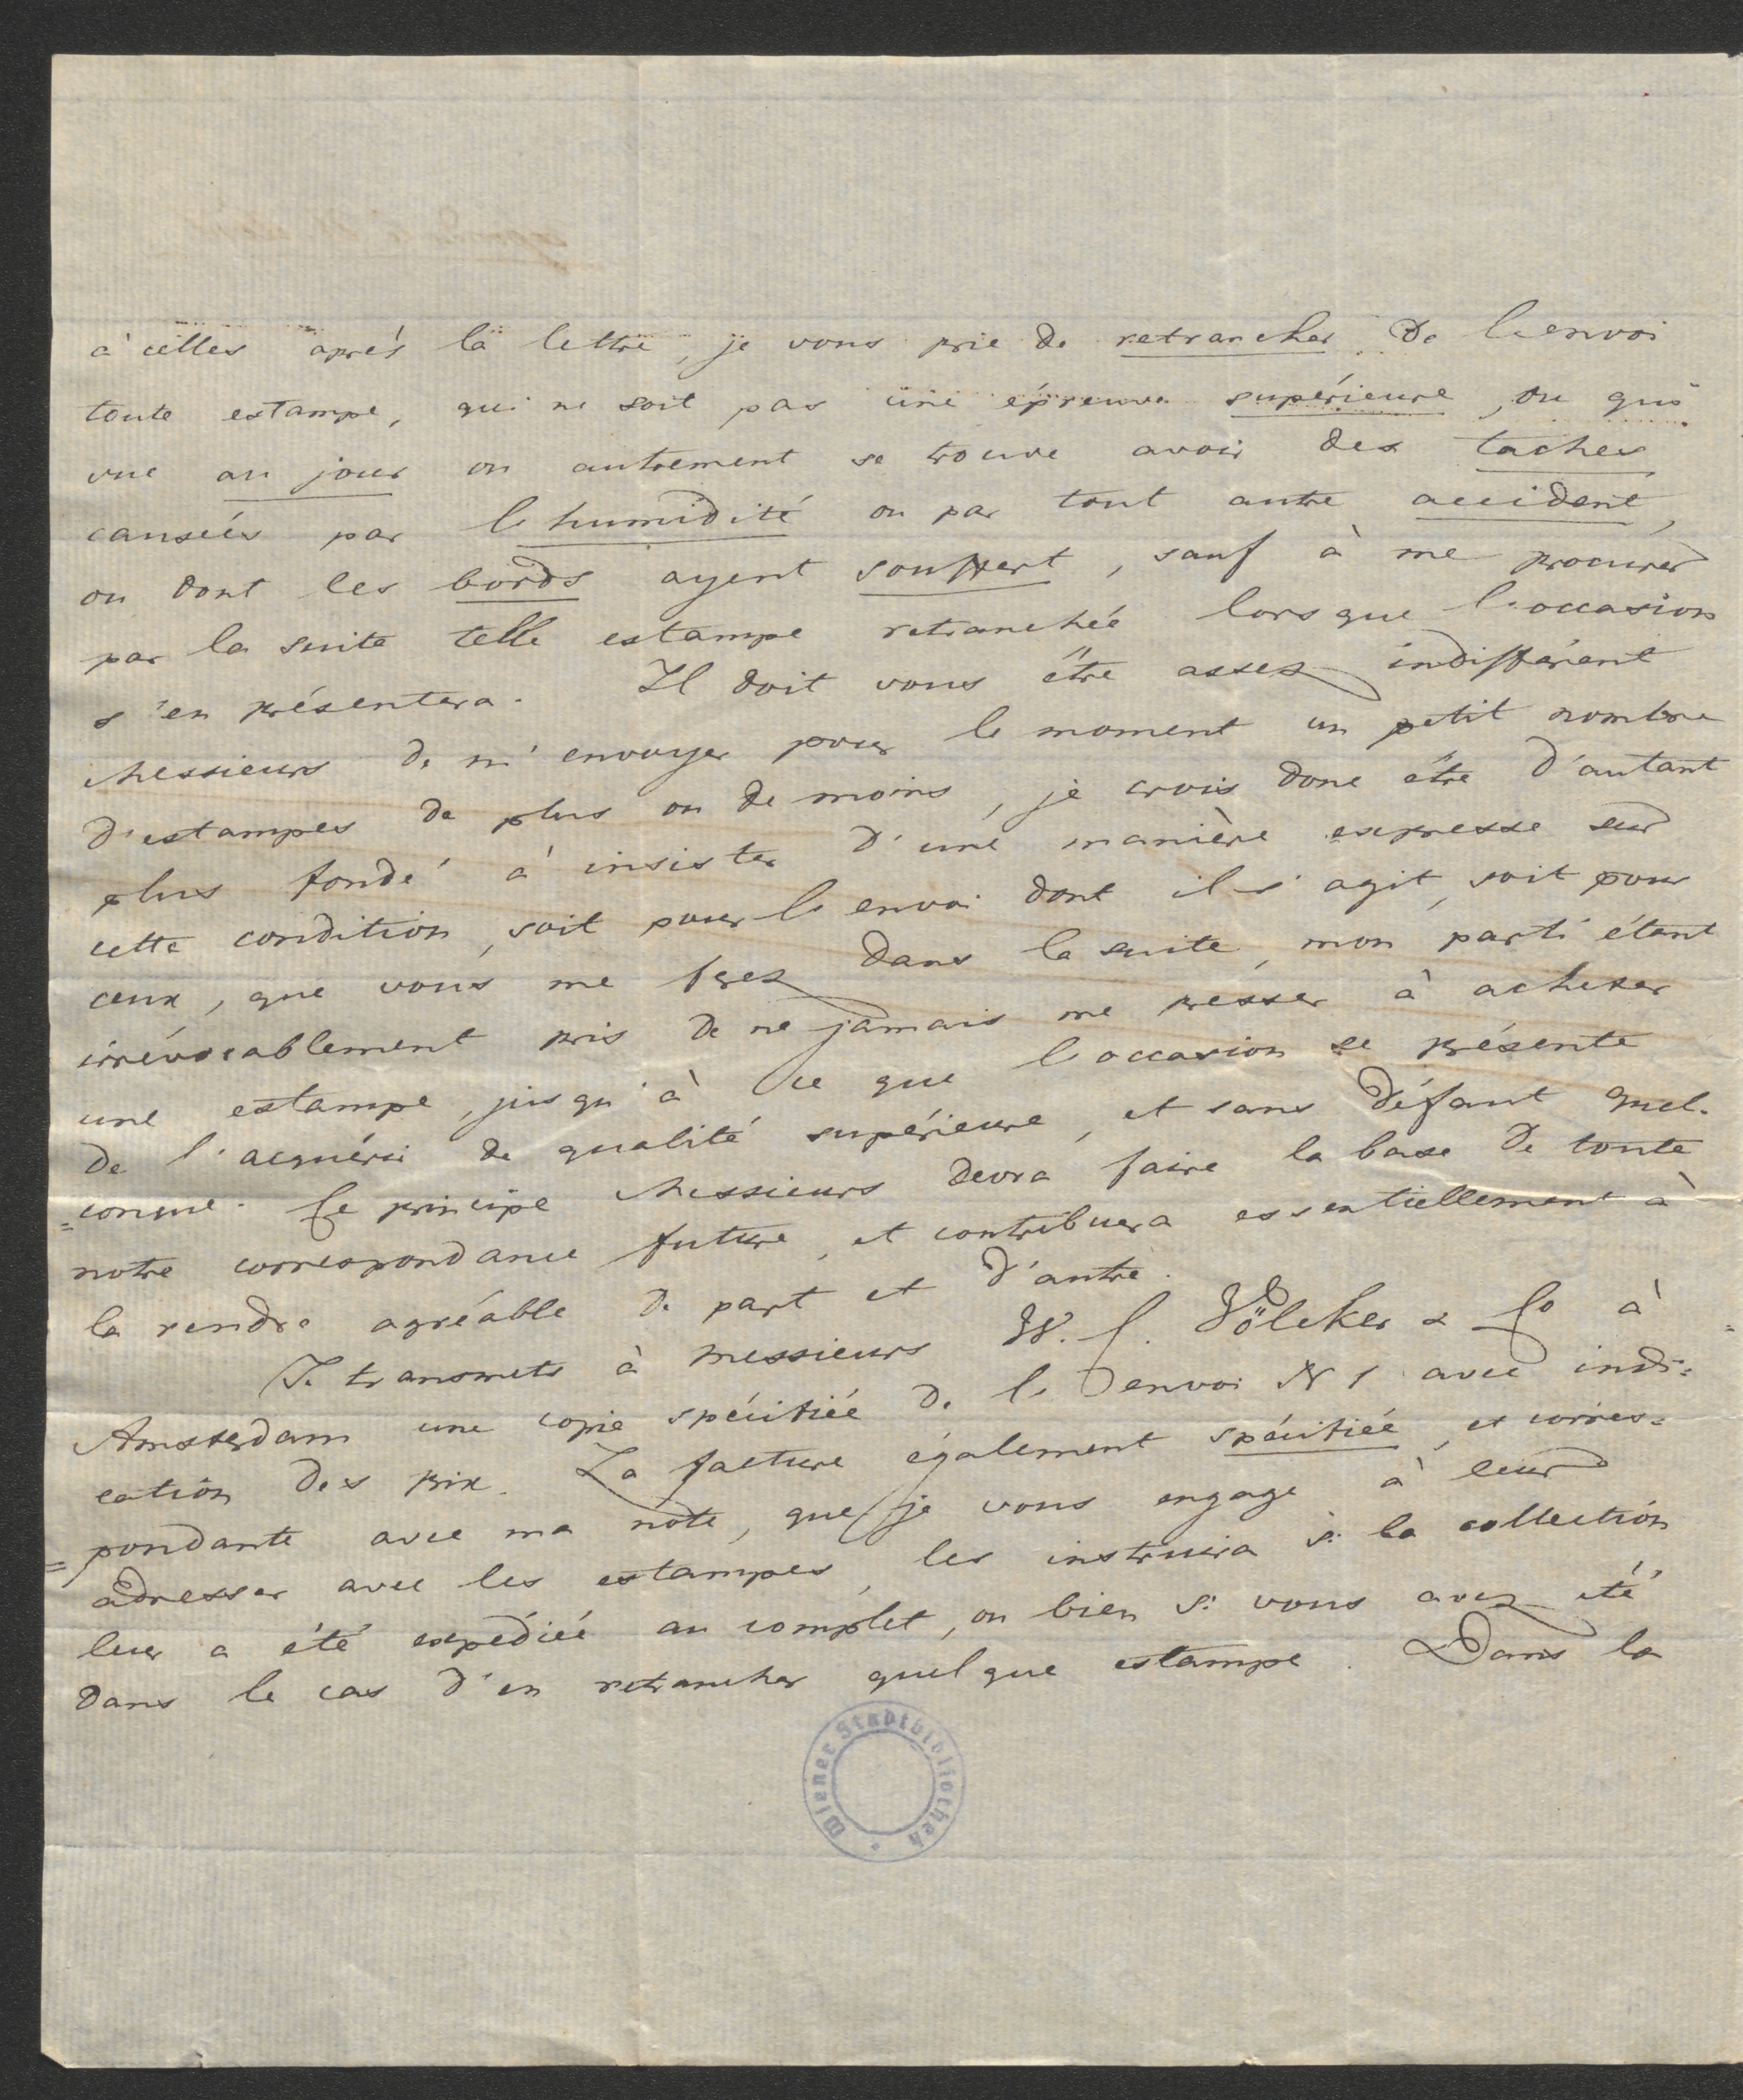 à celles après la lettre, je vous prie de retrancher de l'envoi
toute estampe, qui ne soit pas une épreuve supérieure, ou qui
vue au jour ou autrement se trouve avoir des taches
causées par l'humidité ou par tout autre accident,
ou dont les bords ayent souffert, sauf à me procurer
par la suite telle estampe retranchée lorsque l'occasion
s'en présentera. Il doit vous être assez indifférent
Messieurs de m'envoyer pour le moment un petit nombre
d'estampes de plus ou de moins, je crois donc être d'autant
plus fondé à insister d'une manière expresse sur
cette condition, soit pour l'envoi dont il s'agit, soit pour
ceux, que vous me ferez dans la suite, mon parti étant
irrévocablement pris de ne jamais me presser à acheter
une estampe, jusqu'à ce que l'occasion se présente
de l'acquérir de qualité supérieure, et sans défaut quel-
=conque. Ce principe Messieurs devra faire la base de toute
notre correspondance future, et contribuera essentiellement à
la rendre agréable de part et d'autre.
Je transmets à Messieurs W. C. Völcker & Co à
Amsterdam une copie spécifiée de l'envoi N 1 avec indi=
cation des prix. La facture également spécifiée, et corres=
=pondante avec ma note, que je vous engage à leur
adresser avec les estampes, les instruira si la collection
leur a été expédiée au complet, ou bien si vous avez été
dans le cas d'en retrancher quelque estampe. Dans la
Wiener Stadtbibliothek